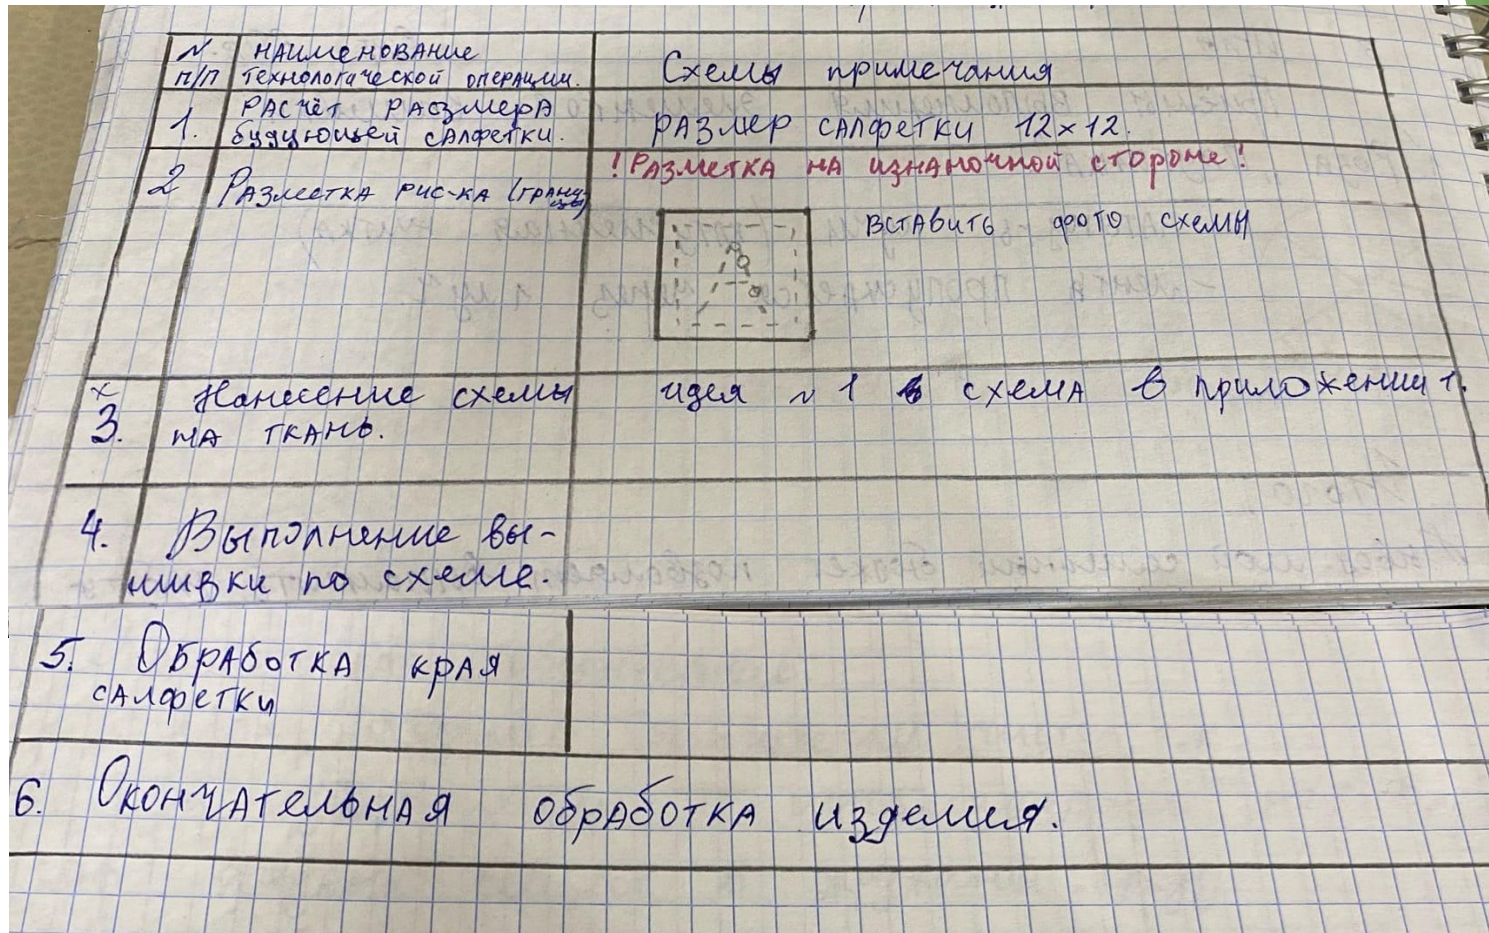 N НАИМЕНОВАНИЕ
п/п технологической операции. Схемы примечания
1. РАСЧЁТ РАСЗМЕРА
будующей САЛФЕТКИ. РАЗМЕР САЛФЕТКИ 12×12.
! РАЗМЕТКА НА ИЗНАНОЧНОЙ СТОРОНЕ!
2 РАЗМЕТКА РИС-КА (ГРАНИ
ЦЫ)
ВСТАВИТЬ ФОТО СХЕМЫ
х
3. Нанесение схемы идея N1 в схема в приложении 1.
НА ТКАНЬ.
4. Выполнение вы-
шивки по схеме.
5. Обработка края
САЛФЕТКИ
6. Окончательная обработка изделия.